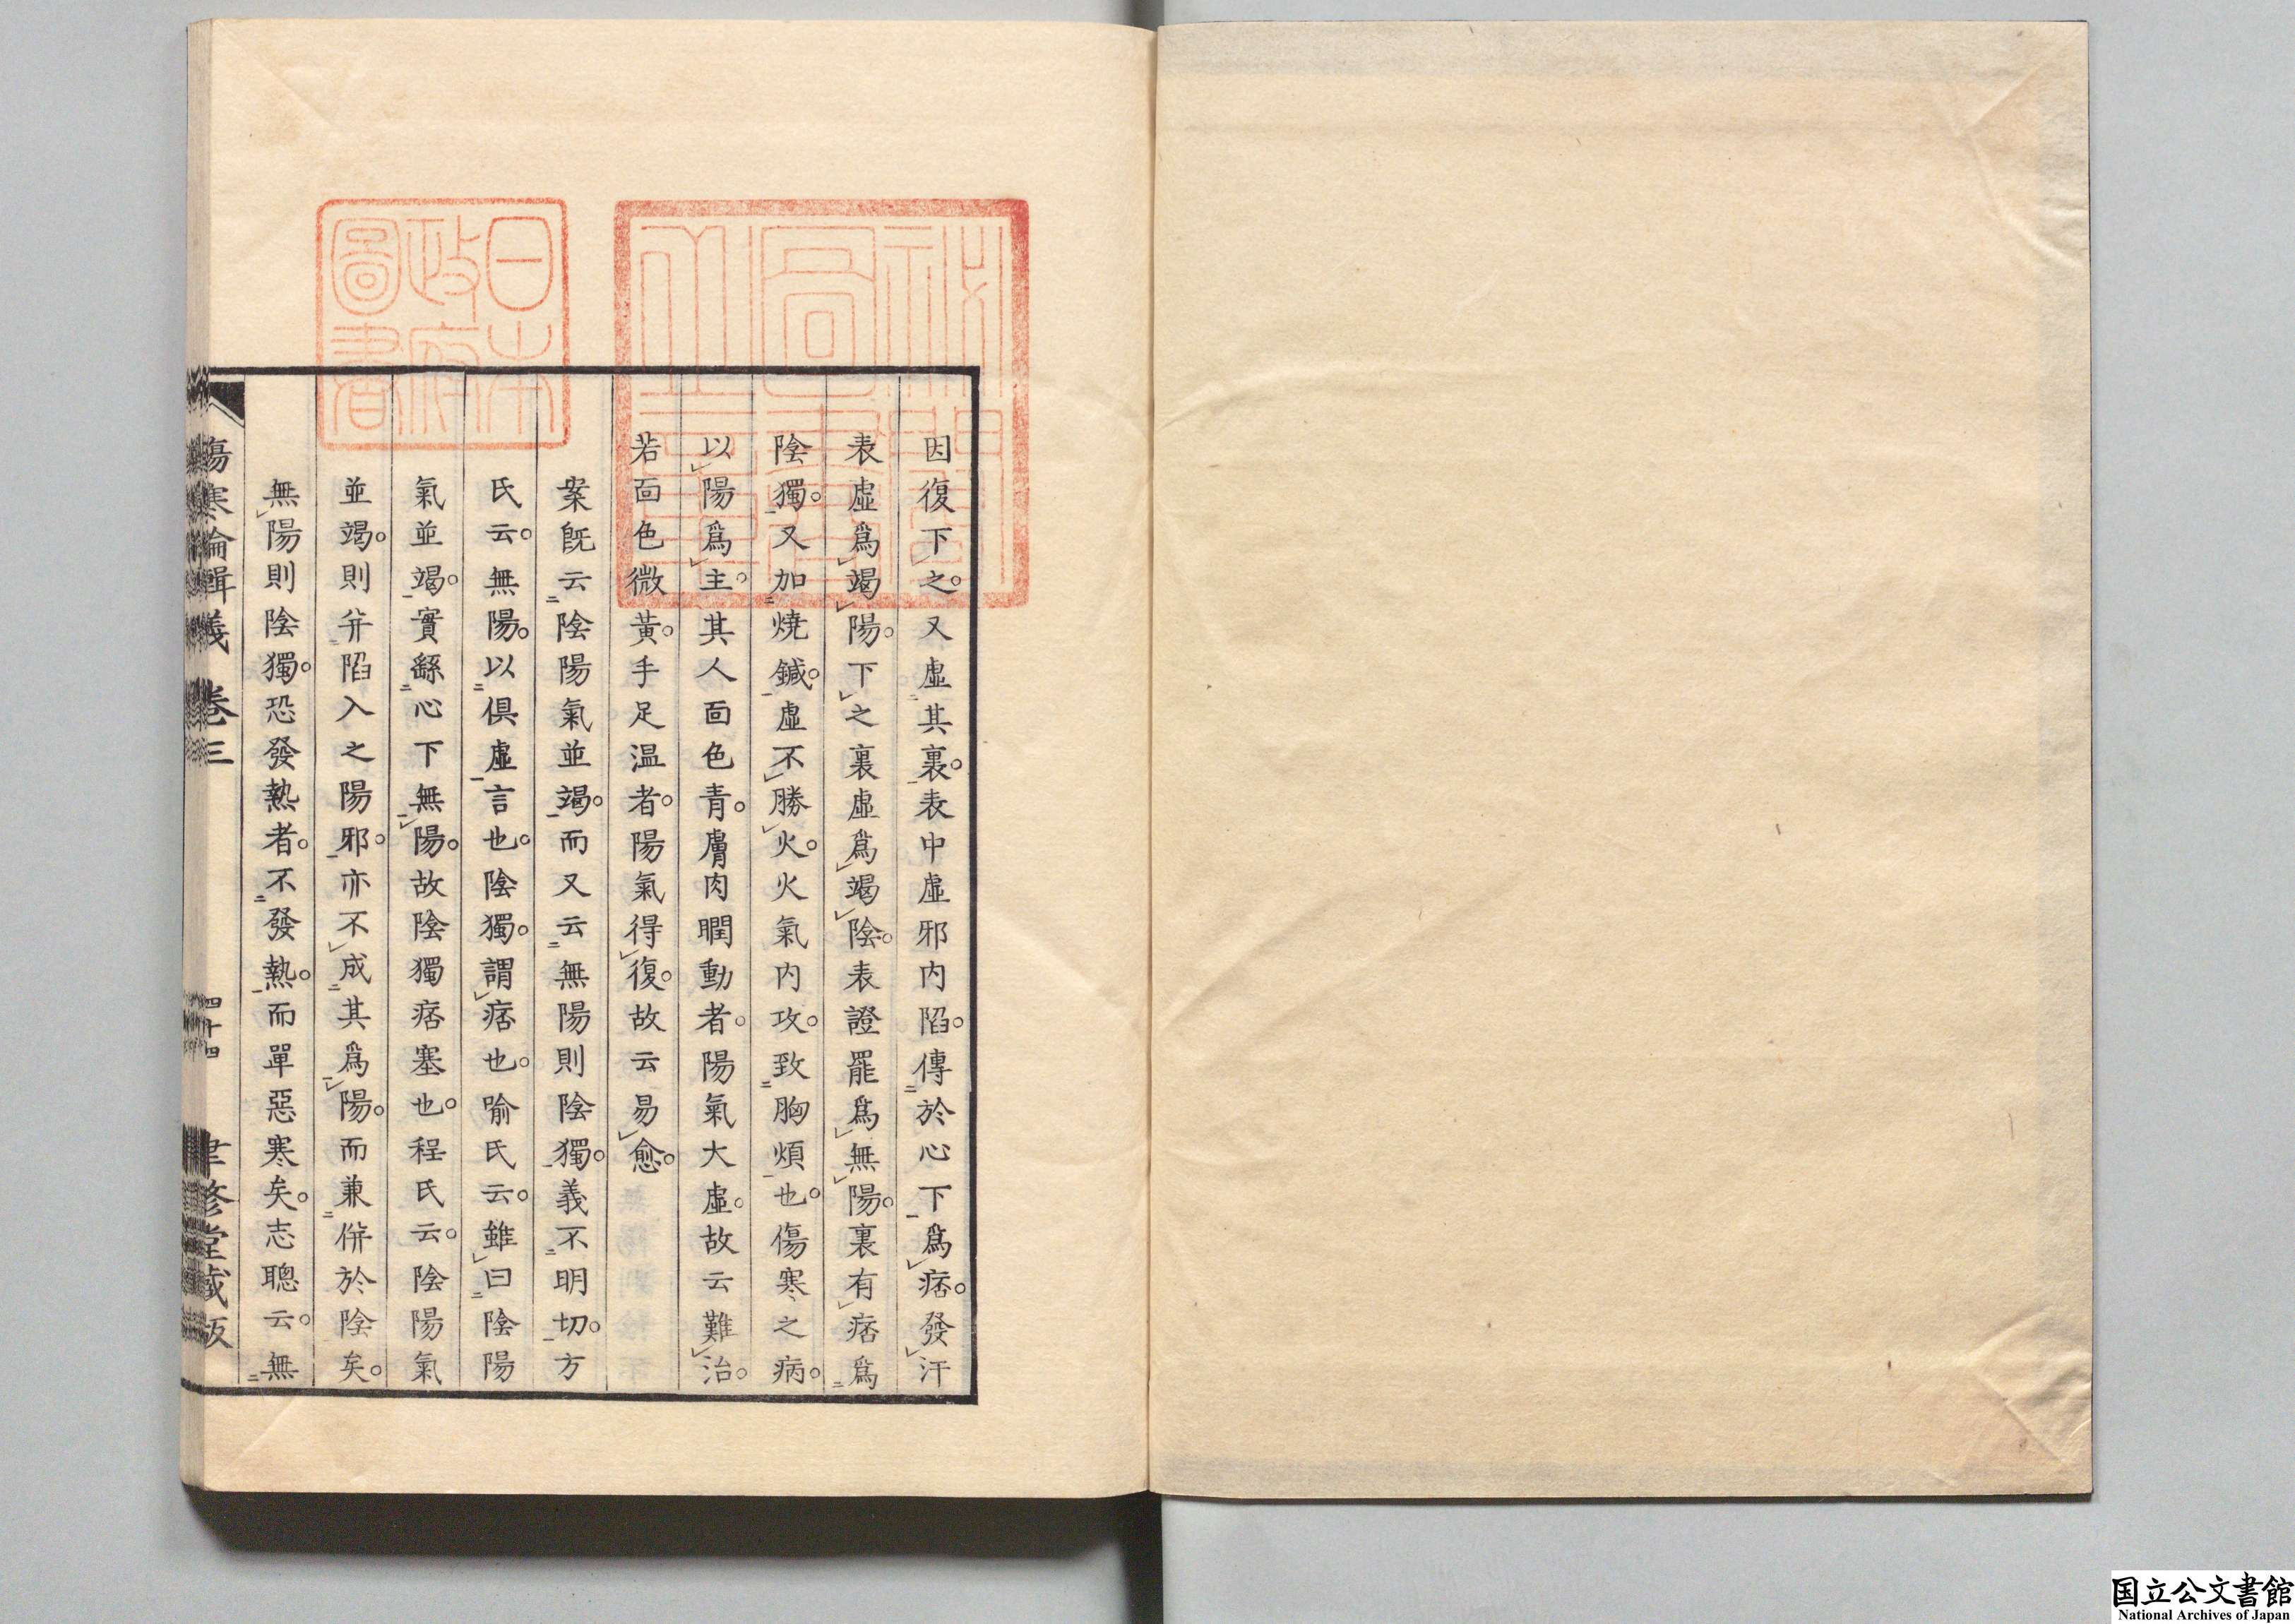 因復下之。又虛其裏。表中虛邪内陷。傳於心下爲痞。發汗
表虛爲竭陽。下之裏虛爲竭陰。表證罷爲無陽。裏有痞爲
陰獨。又加燒鍼。虛不勝火。火氣内攻。致胸煩也。傷寒之病。
以陽爲主。其人面色青。膚肉瞤動者。陽氣大虛。故云難治。
若面色微黃。手足温者。陽氣得復。故云易愈。
案既云陰陽氣並竭。而又云無陽則陰獨。義不明切。方
氏云。無陽。以俱虛言也。陰獨。謂痞也。喻氏云。雖曰陰陽
氣並竭。實繇心下無陽。故陰獨痞塞也。程氏云。陰陽氣
並竭。則并陷入之陽邪。亦不成其爲陽。而兼併於陰矣。
無陽則陰獨。恐發熱者。不發熱。而單惡寒矣。志聰云。無
傷寒論輯義 卷三 四十四 聿修堂藏版
日本政府圖書
国立公文書館
National Archives of Japan